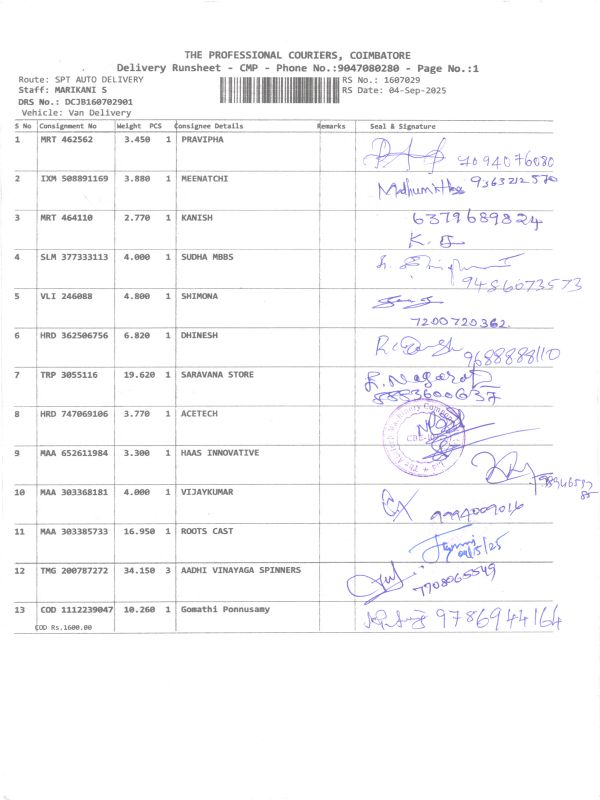 THE PROFESSIONAL COURIERS, COIMBATORE
Delivery Runsheet - CMP - Phone No.:9047080280 - Page No.:1
Route: SPT AUTO DELIVERY RS No.: 1607029
Staff: MARIKANI S RS Date: 04-Sep-2025
DRS No.: DCJB160702901
Vehicle: Van Delivery
S No Consignment No Weight PCS Consignee Details Remarks Seal & Signature
1 MRT 462562 3.450 1 PRAVIPHA 7094076080
2 IXM 508891169 3.880 1 MEENATCHI Madhumitha 9363212570
3 MRT 464110 2.770 1 KANISH 6379689824
4 SLM 377333113 4.000 1 SUDHA MBBS
9486073573
5 VLI 246088 4.800 1 SHIMONA
7200720362.
6 HRD 362506756 6.820 1 DHINESH 9688888110
7 TRP 3055116 19.620 1 SARAVANA STORE
8883600637
8 HRD 747069106 3.770 1 ACETECH
9 MAA 652611984 3.300 1 HAAS INNOVATIVE
10 MAA 303368181 4.000 1 VIJAYKUMAR
9994009016
11 MAA 303385733 16.950 1 ROOTS CAST
12 TMG 200787272 34.150 3 AADHI VINAYAGA SPINNERS
7708065549
13 COD 1112239047 10.260 1 Gomathi Ponnusamy 9786944164
COD Rs.1600.00